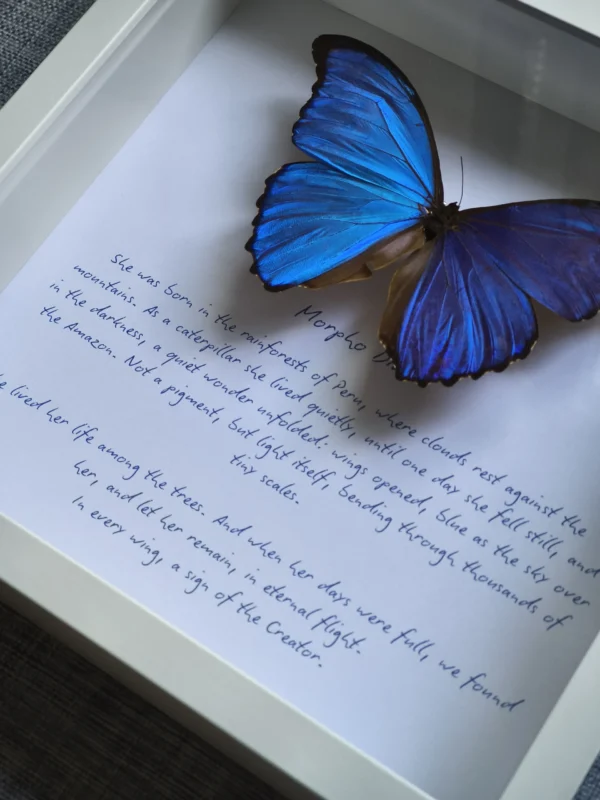 Morpho
She was born in the rainforests of Peru, where clouds rest against the
mountains. As a caterpillar she lived quietly, until one day she fell still, and
in the darkness, a quiet wonder unfolded. wings opened, blue as the sky over
the Amazon. Not a pigment, but light itself, bending through thousands of
tiny scales.
lived her life among the trees. And when her days were full, we found
her, and let her remain, in eternal flight.
In every wing, a sign of the Creator.